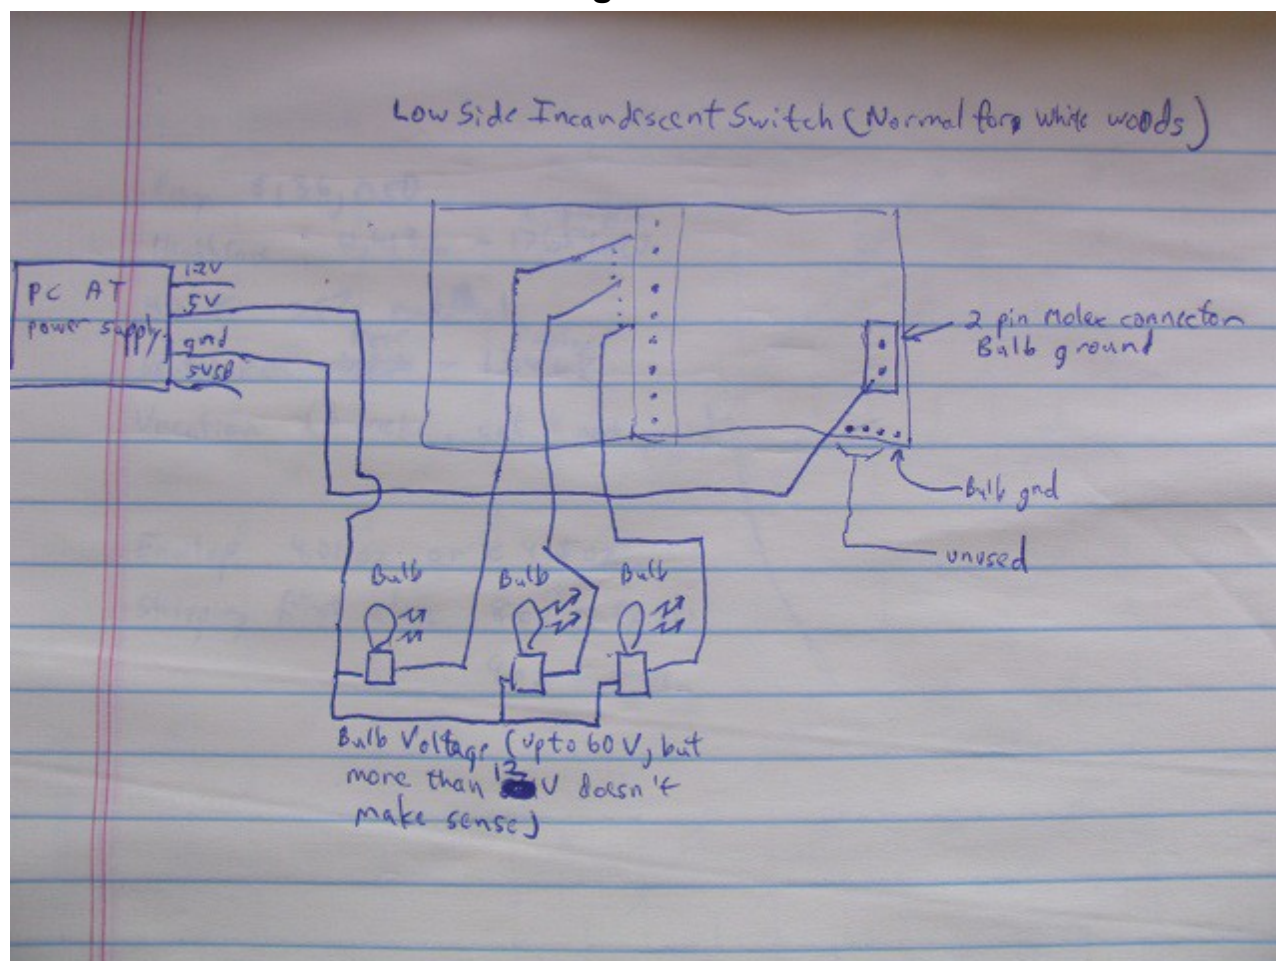 Low Side Incandescent Switch (Normal for white woods)
PC AT
power supply
12V
5V
gnd
5VSB
2 pin Molex connector
Bulb ground
Bulb gnd
unused
Bulb
Bulb
Bulb
Bulb Voltage (up to 60 V, but
more than 12 V doesn't
make sense)